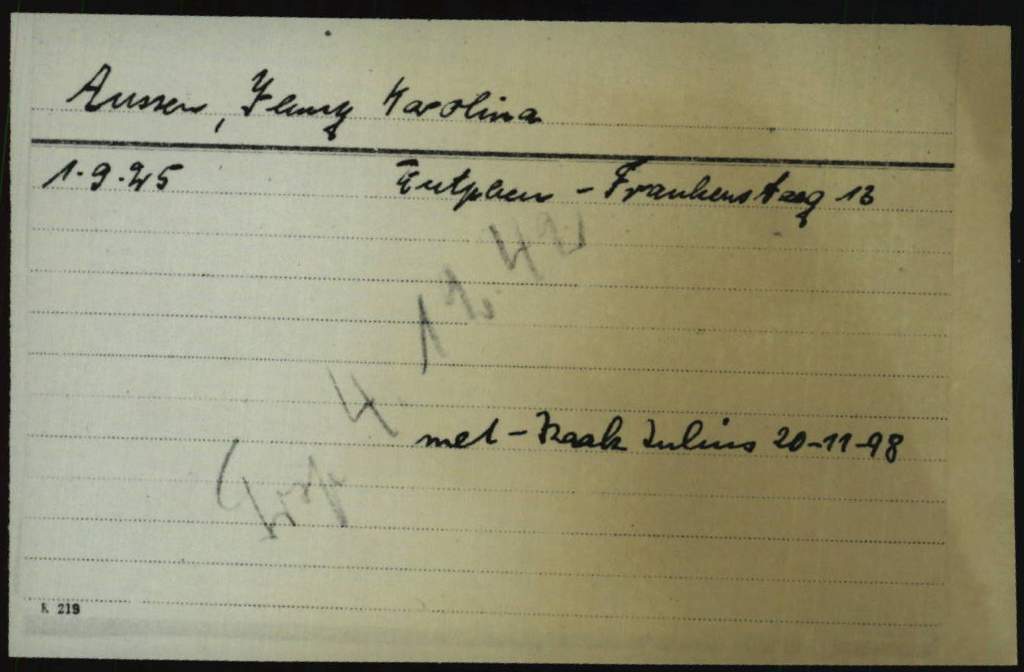 Aussen, Jenny Karolina
1.9.25 Zutphen - Frankensteeg 13
4.12.42
met - Izaak Julius 20-11-98
K 219